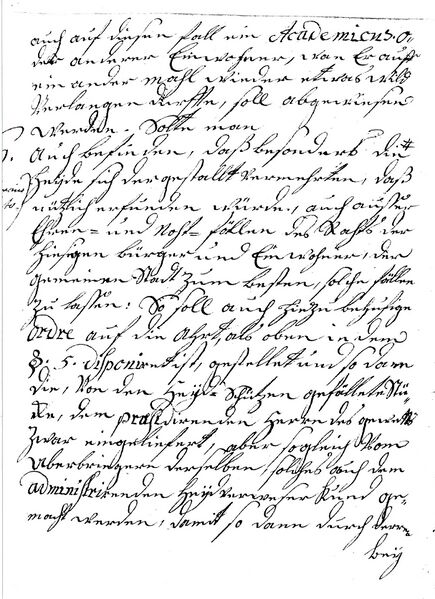 auch auf diesen fall ein Academicus. o-
der anderer Einwohner, wan Er auff
ein ander mahl wieder etwas
verlangen dürffte, soll abgewiesen
werden. Solte man
Auch befinden, daß besonders die
sich dergestallt vermehrten, daß
nützlich erfunden würde, auch außer
Ehren- und Noht-fällen des Rahts der
hiesigen bürger und Einwohner, der
gemeinen Stadt zum besten, solche fällen
zu laßen: So soll auch hiezu behufige
Ordre auf die Ahrt, als oben in dem
§. 5. disponirt ist, gestellet und so dann
die, von den Heyd-Schützen gefällete Stü-
ke, dem præsidirenden Herrn des gewetts
zwar eingeliefert, aber sogleich vom
Überbringere derselben, solches auch dem
administrirenden Heydverweser kund ge-
macht werden, damit so dann durch
bey